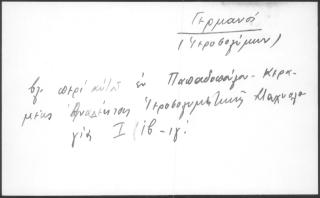 Γερμανοί
(Ἱεροσολύμων)
βλ. περὶ αὐτοῦ ἐν Παπαδοπούλου-Κερα-
μέως Ἀνάλεκτα Ἱεροσολυμιτικῆς Σταχυολο-
γίας I (ιβ-ιγ.